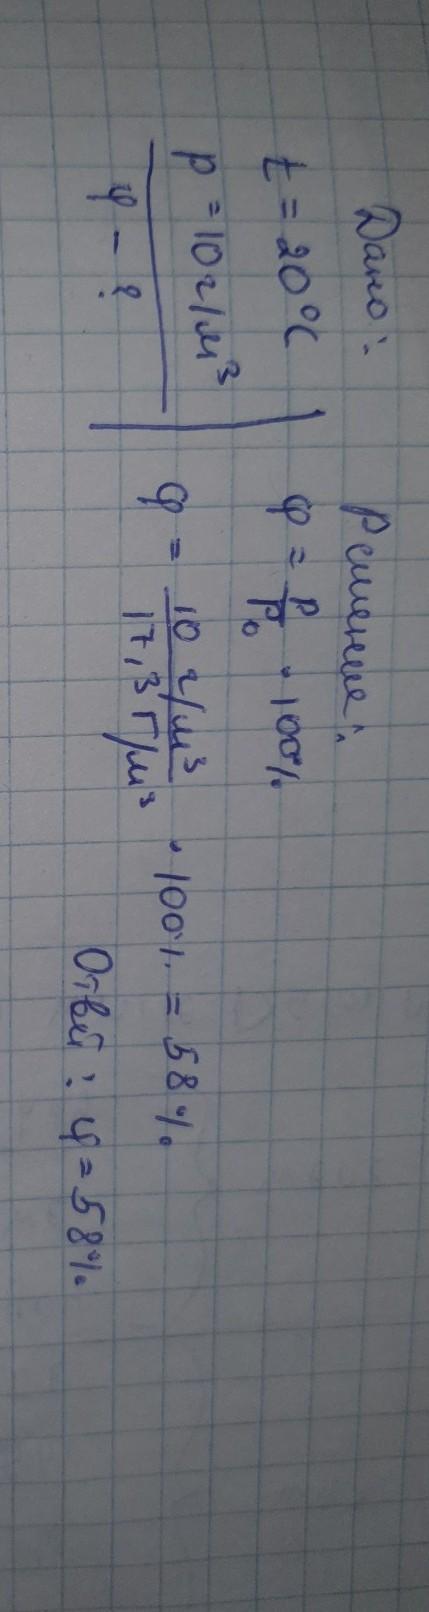 Дано:
t = 20°C
ρ = 10 г/м³
φ - ?
Решение:
φ = ρ/ρ₀ · 100%
φ = 10 г/м³ / 17,3 г/м³ · 100% = 58%
Ответ: φ = 58%